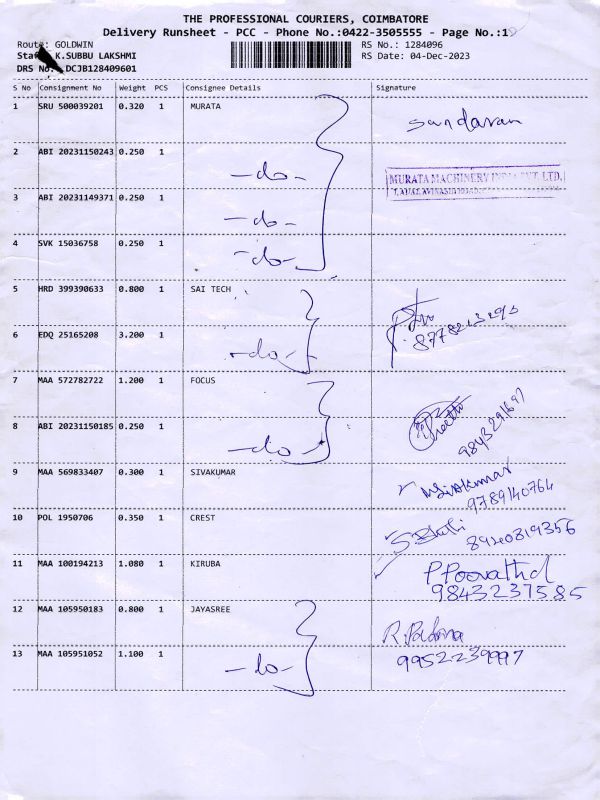 THE PROFESSIONAL COURIERS, COIMBATORE
Delivery Runsheet - PCC - Phone No.:0422-3505555 - Page No.:1
Route: GOLDWIN RS No.: 1284096
Staf K.SUBBU LAKSHMI RS Date: 04-Dec-2023
DRS No. DCJB128409601
S No Consignment No Weight PCS Consignee Details Signature
1 SRU 500039201 0.320 1 MURATA Sundaran
2 ABI 20231150243 0.250 1 -do-
MURATA MACHINERY INDIA PVT. LTD.
3 ABI 20231149371 0.250 1 -do-
4 SVK 15036758 0.250 1 -do-
5 HRD 399390633 0.800 1 SAI TECH
6 EDQ 25165208 3.200 1 -do-
7 MAA 572782722 1.200 1 FOCUS
8 ABI 20231150185 0.250 1 -do- 9843291697
9 MAA 569833407 0.300 1 SIVAKUMAR Sivakumar
9789140764
10 POL 1950706 0.350 1 CREST 8940819356
11 MAA 100194213 1.080 1 KIRUBA P Poovathal
9843237585
12 MAA 105950183 0.800 1 JAYASREE R. Padma
13 MAA 105951052 1.100 1 -do- 9952239997